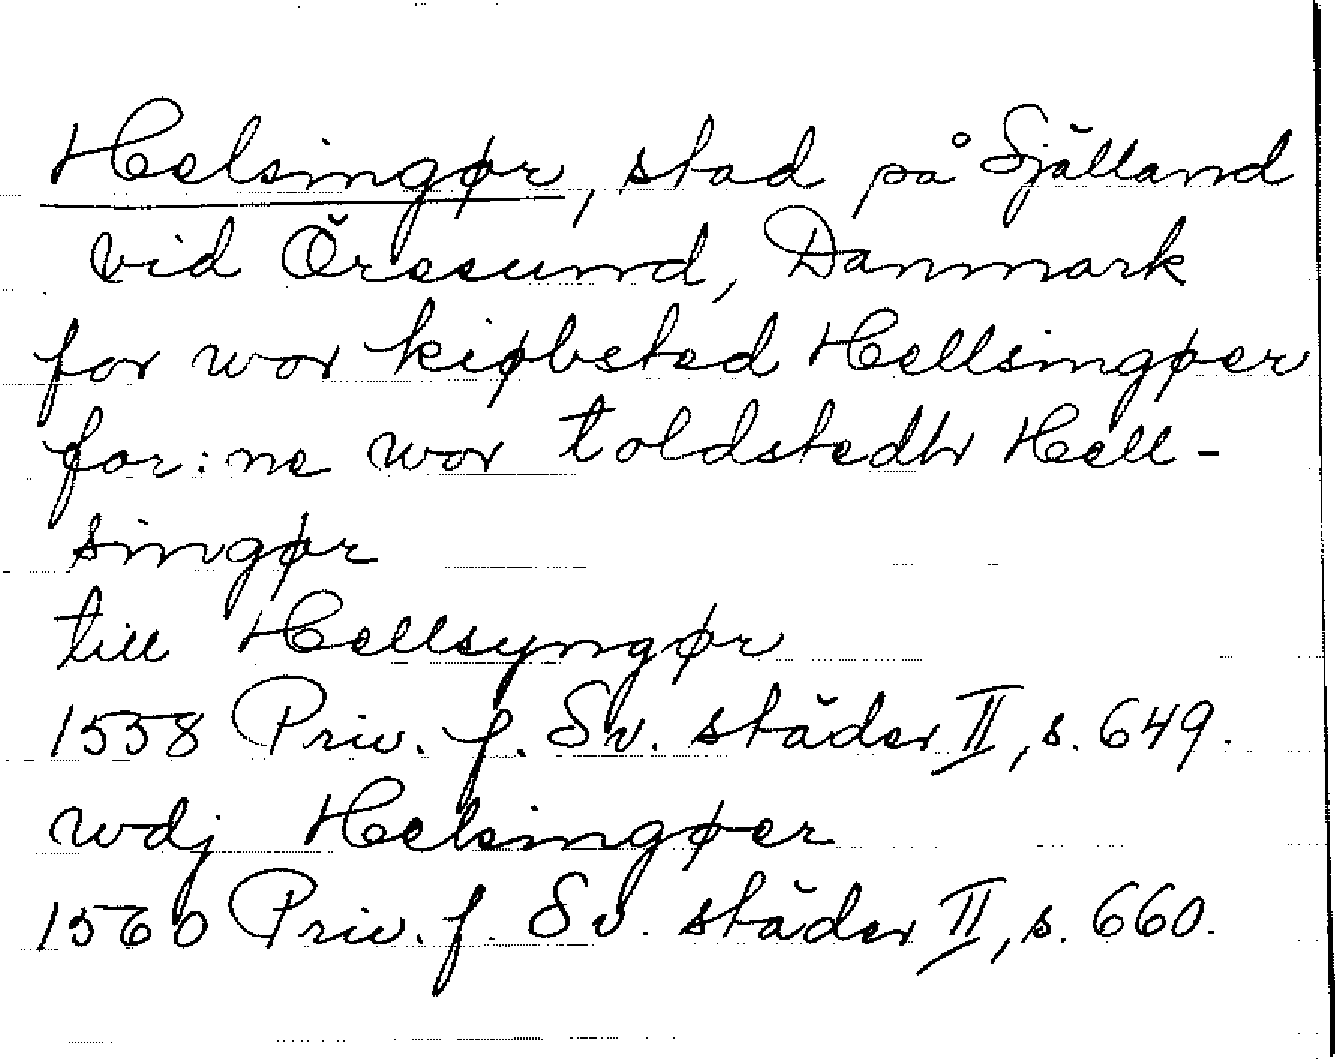 Helsingør, stad på Själland
vid Öresund, Danmark
for wor kiøbsted Hellsingøer
for:ne wor toldstedtt Hell-
singør
till Hellsyngør
1558 Priv. f. Sv. städer II, s. 649.
wdj Helsingøer
1560 Priv. f. Sv. städer II, s. 660.